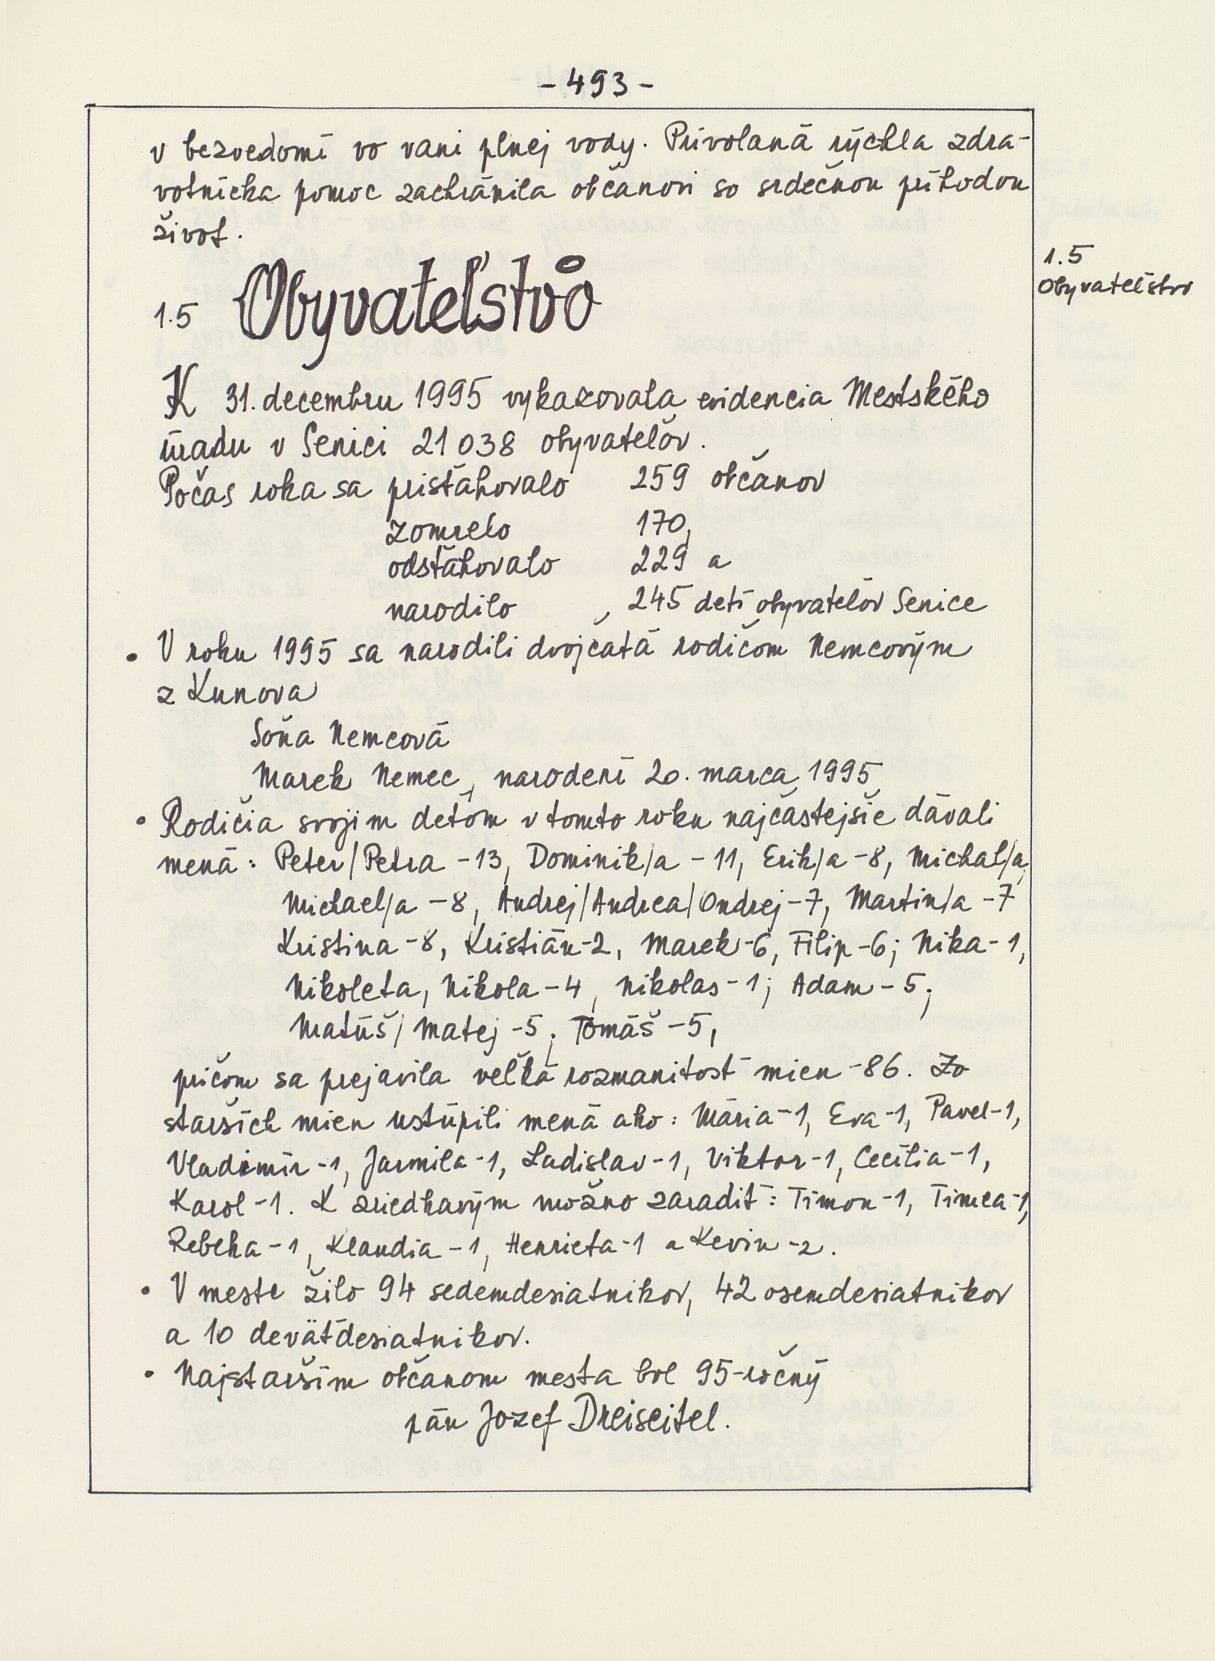 - 493 -
v bezvedomí vo vani plnej vody. Privolaná rýchla zdra-
votnícka pomoc zachránila občanovi so srdečnou príhodou
život.
1.5
Obyvateľstvo
1.5 Obyvateľstvo
K 31. decembru 1995 vykazovala evidencia Mestského
úradu v Senici 21 038 obyvateľov.
Počas roka sa prisťahovalo 259 občanov
zomrelo 170,
odsťahovalo 229 a
narodilo, 245 detí obyvateľov Senice
• V roku 1995 sa narodili dvojčatá rodičom Nemcovým
z Kunova
Soňa Nemcová
Marek Nemec, narodení 20. marca 1995
• Rodičia svojim deťom v tomto roku najčastejšie dávali
mená: Peter/Petra -13, Dominik/a - 11, Erik/a -8, Michal/a,
Michael/a -8, Andrej/Andrea/Ondrej -7, Martin/a -7
Kristína -8, Kristián -2, Marek -6, Filip -6; Nika -1,
Nikoleta, Nikola -4, Nikolas -1; Adam -5;
Matúš/Matej -5; Tomáš -5,
pričom sa prejavila veľká rozmanitosť mien -86. Zo
starších mien ustúpili mená ako: Mária -1, Eva -1, Pavel -1,
Vladimír -1, Jarmila -1, Ladislav -1, Viktor -1, Cecília -1,
Karol -1. K zriedkavým možno zaradiť: Timon -1, Timea -1,
Rebeka -1, Klaudia -1, Henrieta -1 a Kevin -2.
• V meste žilo 94 sedemdesiatnikov, 42 osemdesiatnikov
a 10 deväťdesiatnikov.
• Najstarším občanom mesta bol 95-ročný
pán Jozef Dreiseitel.